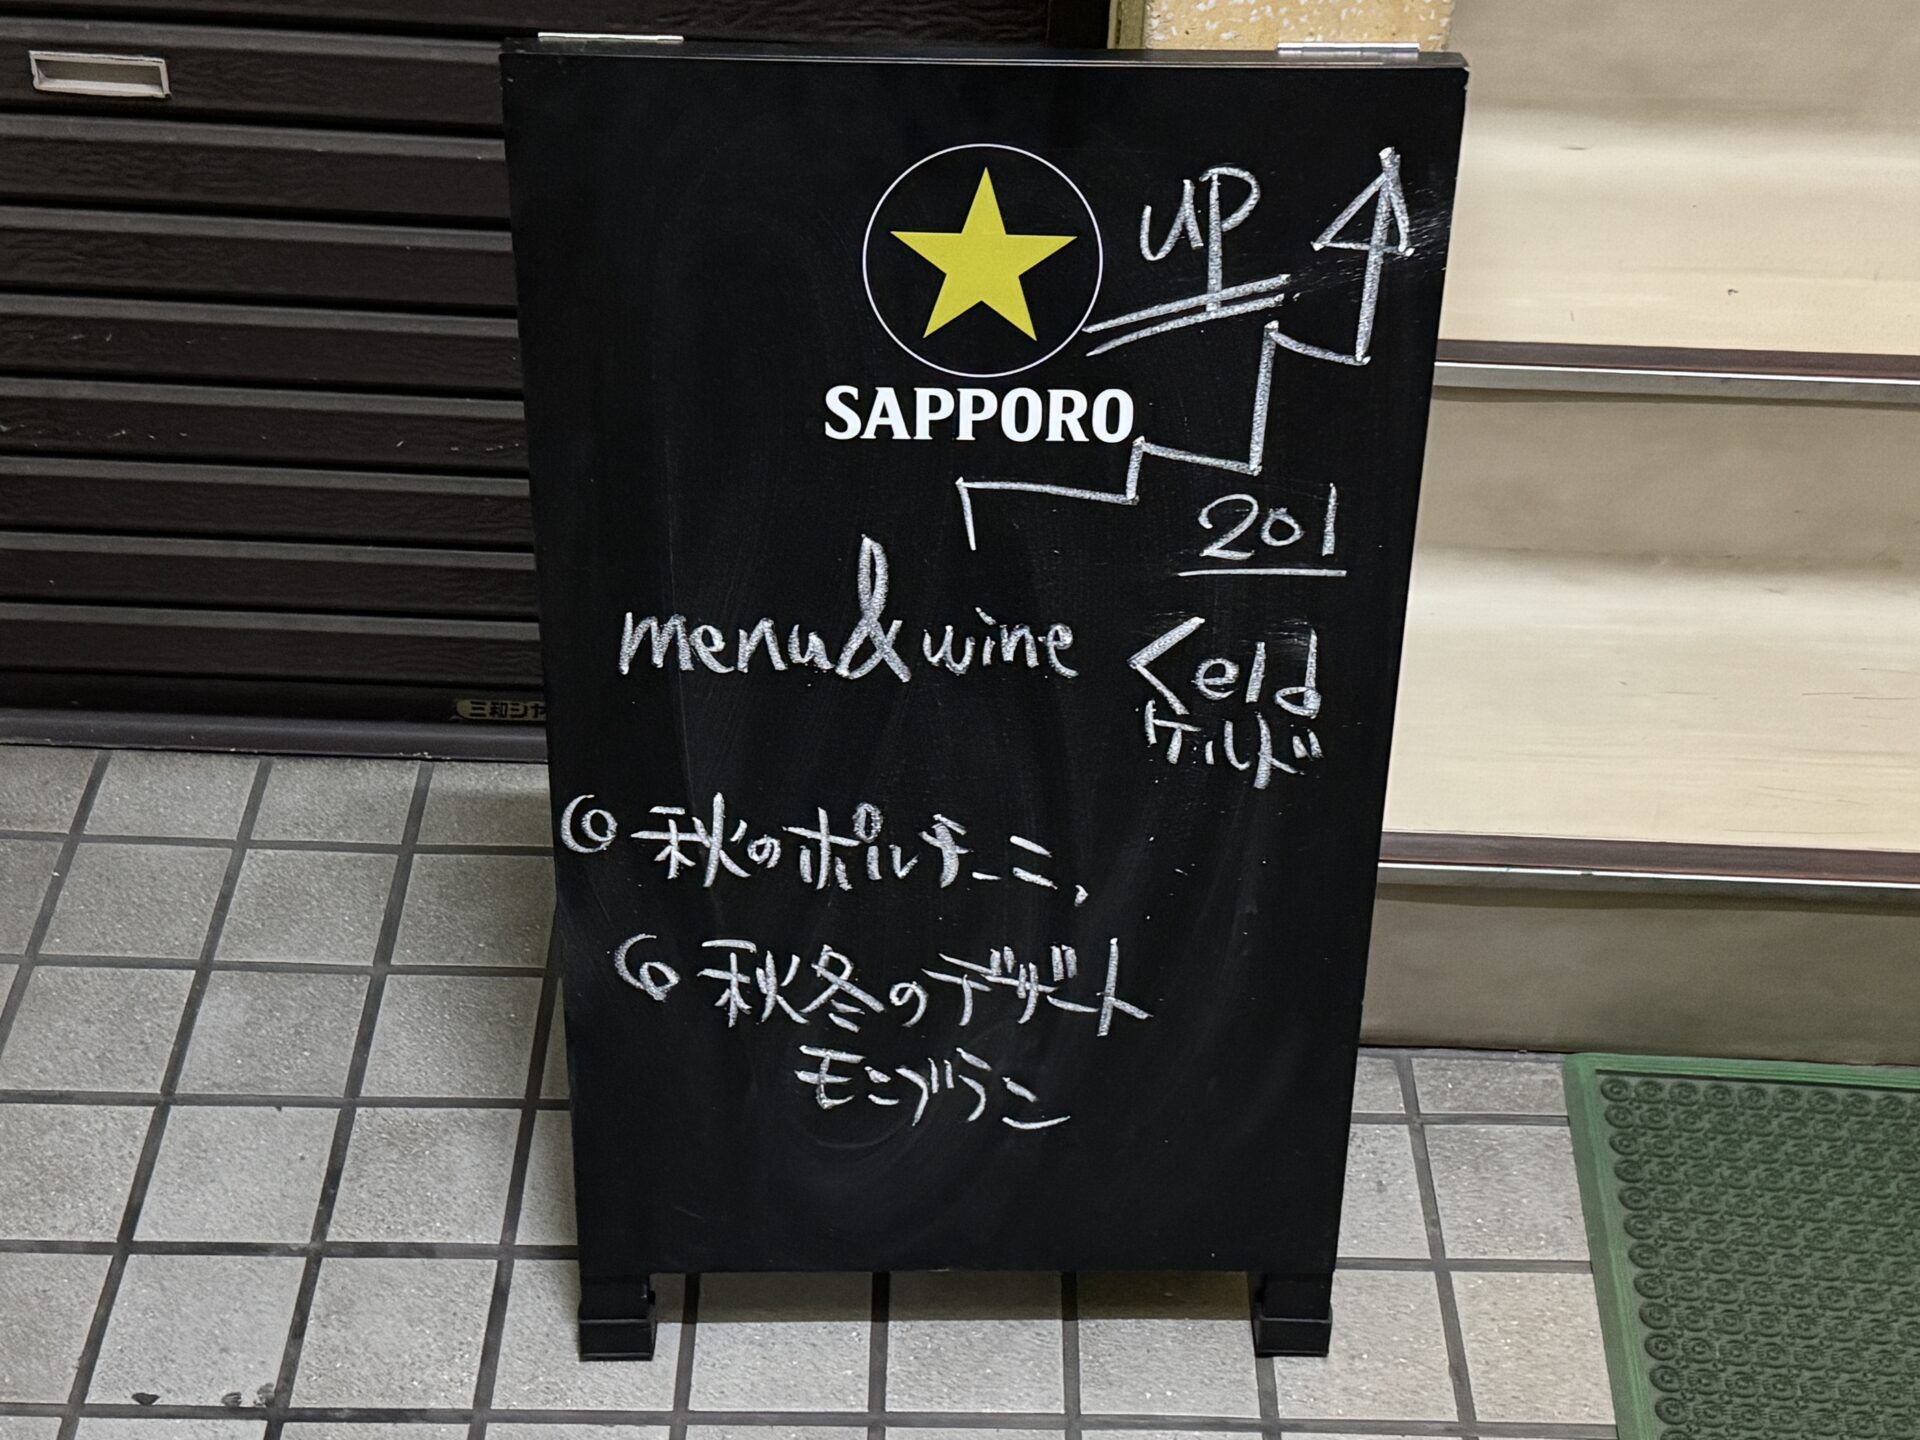 UP
SAPPORO
201
menu&wine
Keld
ケルド
秋のポルチーニ、
秋冬のデザート
モンブラン
三和シャ